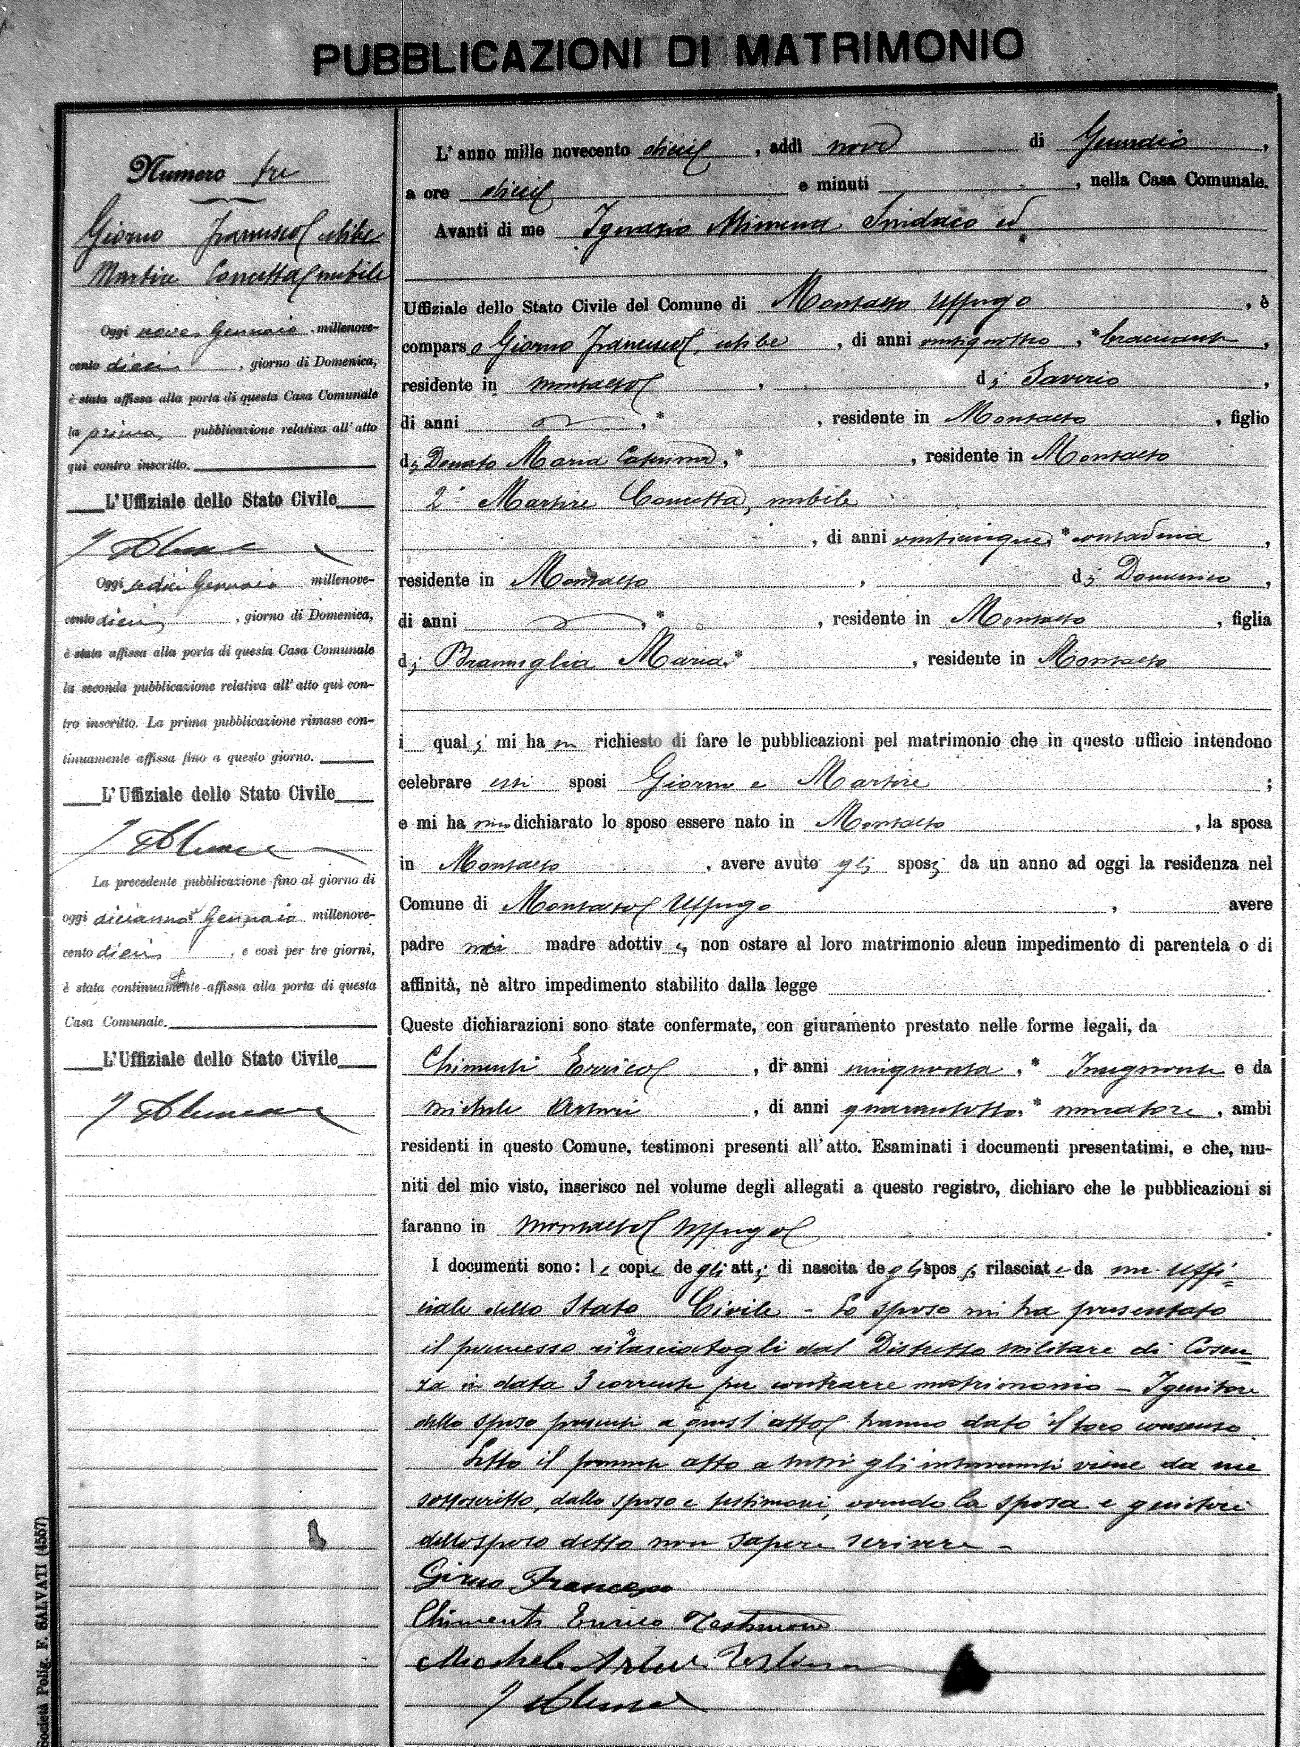 PUBBLICAZIONI DI MATRIMONIO
Numero tre
Giorno Francesco celibe
Martire Concetta nubile
Oggi nove Gennaio millenove-
cento dieci, giorno di Domenica,
è stata affissa alla porta di questa Casa Comunale
la prima pubblicazione relativa all'atto
qui contro inscritto.
L'Uffiziale dello Stato Civile
Oggi sedici Gennaio millenove-
cento dieci, giorno di Domenica,
è stata affissa alla porta di questa Casa Comunale
la seconda pubblicazione relativa all'atto quì con-
tro inscritto. La prima pubblicazione rimase con-
tinuamente affissa fino a questo giorno.
L'Uffiziale dello Stato Civile
La precedente pubblicazione fino al giorno di
oggi diciannove Gennaio millenove-
cento dieci, e così per tre giorni,
è stata continuamente affissa alla porta di questa
Casa Comunale.
L'Uffiziale dello Stato Civile
L'anno mille novecento dieci, addì nove di Gennaio,
a ore dieci e minuti, nella Casa Comunale.
Avanti di me Ignazio Sindaco ed
Uffiziale dello Stato Civile del Comune di Montalto Uffugo, è
comparso Giorno Francesco, celibe, di anni ventiquattro, *bracciante,
residente in Montalto, di Saverio,
di anni, * , residente in Montalto, figlio
di Donato Maria Caterina, * , residente in Montalto
2° Martire Concetta, nubile
, di anni venticinque, *contadina,
residente in Montalto, di Domenico,
di anni, * , residente in Montalto, figlia
di Maria, * , residente in Montalto
i quali mi hanno richiesto di fare le pubblicazioni pel matrimonio che in questo ufficio intendono
celebrare essi sposi Giorno e Martire;
e mi hanno dichiarato lo sposo essere nato in Montalto, la sposa
in Montalto, avere avuto gli sposi da un anno ad oggi la residenza nel
Comune di Montalto Uffugo, avere
padre nè madre adottivi, non ostare al loro matrimonio alcun impedimento di parentela o di
affinità, nè altro impedimento stabilito dalla legge
Queste dichiarazioni sono state confermate, con giuramento prestato nelle forme legali, da
Chimenti Errico, di anni cinquanta, * Insegnante e da
Michele Arturi, di anni quarantotto, * muratore, ambi
residenti in questo Comune, testimoni presenti all'atto. Esaminati i documenti presentatimi, e che, mu-
niti del mio visto, inserisco nel volume degli allegati a questo registro, dichiaro che le pubblicazioni si
faranno in Montalto Uffugo.
I documenti sono: le copie degli atti di nascita degli sposi rilasciate da me Uffi=
ziale dello Stato Civile - Lo sposo mi ha presentato
il permesso rilasciatogli dal Distretto militare di Cosen
za in data 3 corrente per contrarre matrimonio - I genitori
dello sposo presenti a quest'atto hanno dato il loro consenso.
Letto il presente atto a tutti gli intervenuti viene da me
sottoscritto, dallo sposo e testimoni, avendo la sposa e genitori
dello sposo detto non sapere scrivere -
Giorno Francesco
Chimenti Errico Testimone
Michele Arturi Testimone
Società Polig. F. SALVATI (4567)